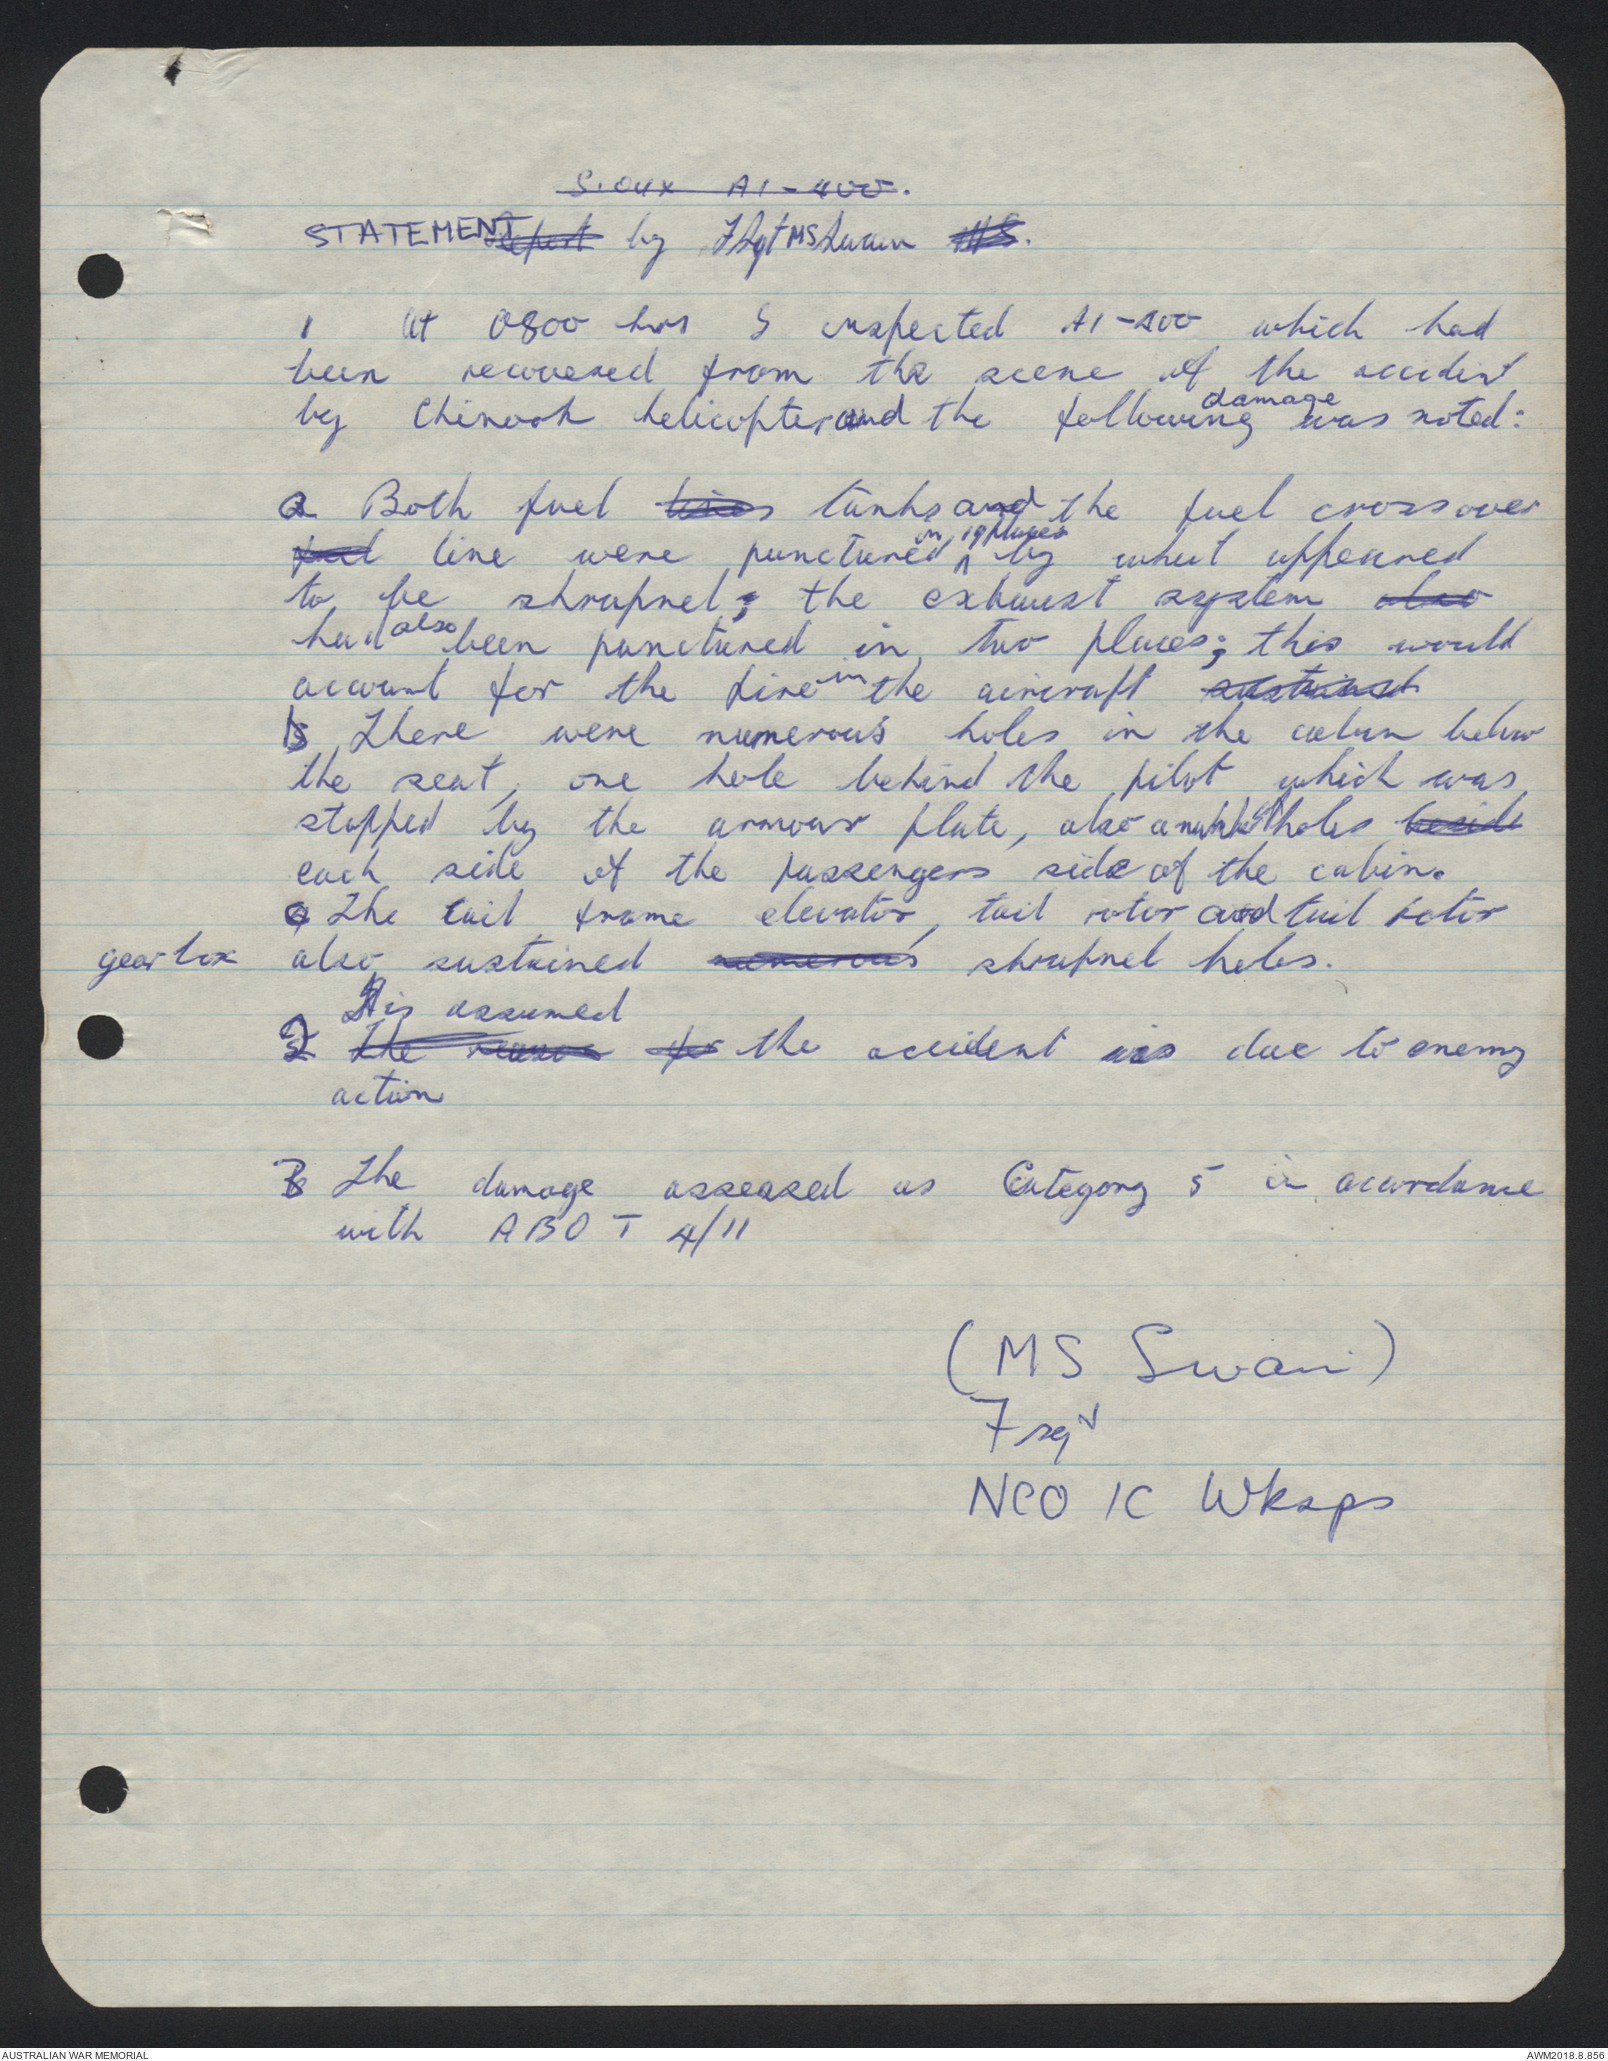 Sioux A1-400.
STATEMENT Report by FSgt MS Swain MS.
1 At 0800 hrs I inspected A1-400 which had
been recovered from the scene of the accident
by Chinook helicopter and the following damage was noted:
a Both fuel lines tanks and the fuel crossover
fuel line were punctured in 19 places by what appeared
to be shrapnel; the exhaust system also
had also been punctured in two places; this would
account for the fire in the aircraft sustained
b There were numerous holes in the cabin below
the seat, one hole behind the pilot which was
stopped by the armour plate, also a number of holes beside
each side of the passengers side of the cabin.
c The tail frame elevator, tail rotor and tail rotor
gear box also sustained numerous shrapnel holes.
It is assumed
2 The reason for the accident is due to enemy
action
3 The damage assessed as Category 5 in accordance
with ABO T 4/11
(MS Swain)
Fsgt
NCO IC Wksps
AUSTRALIAN WAR MEMORIAL
AWM2018.8.856